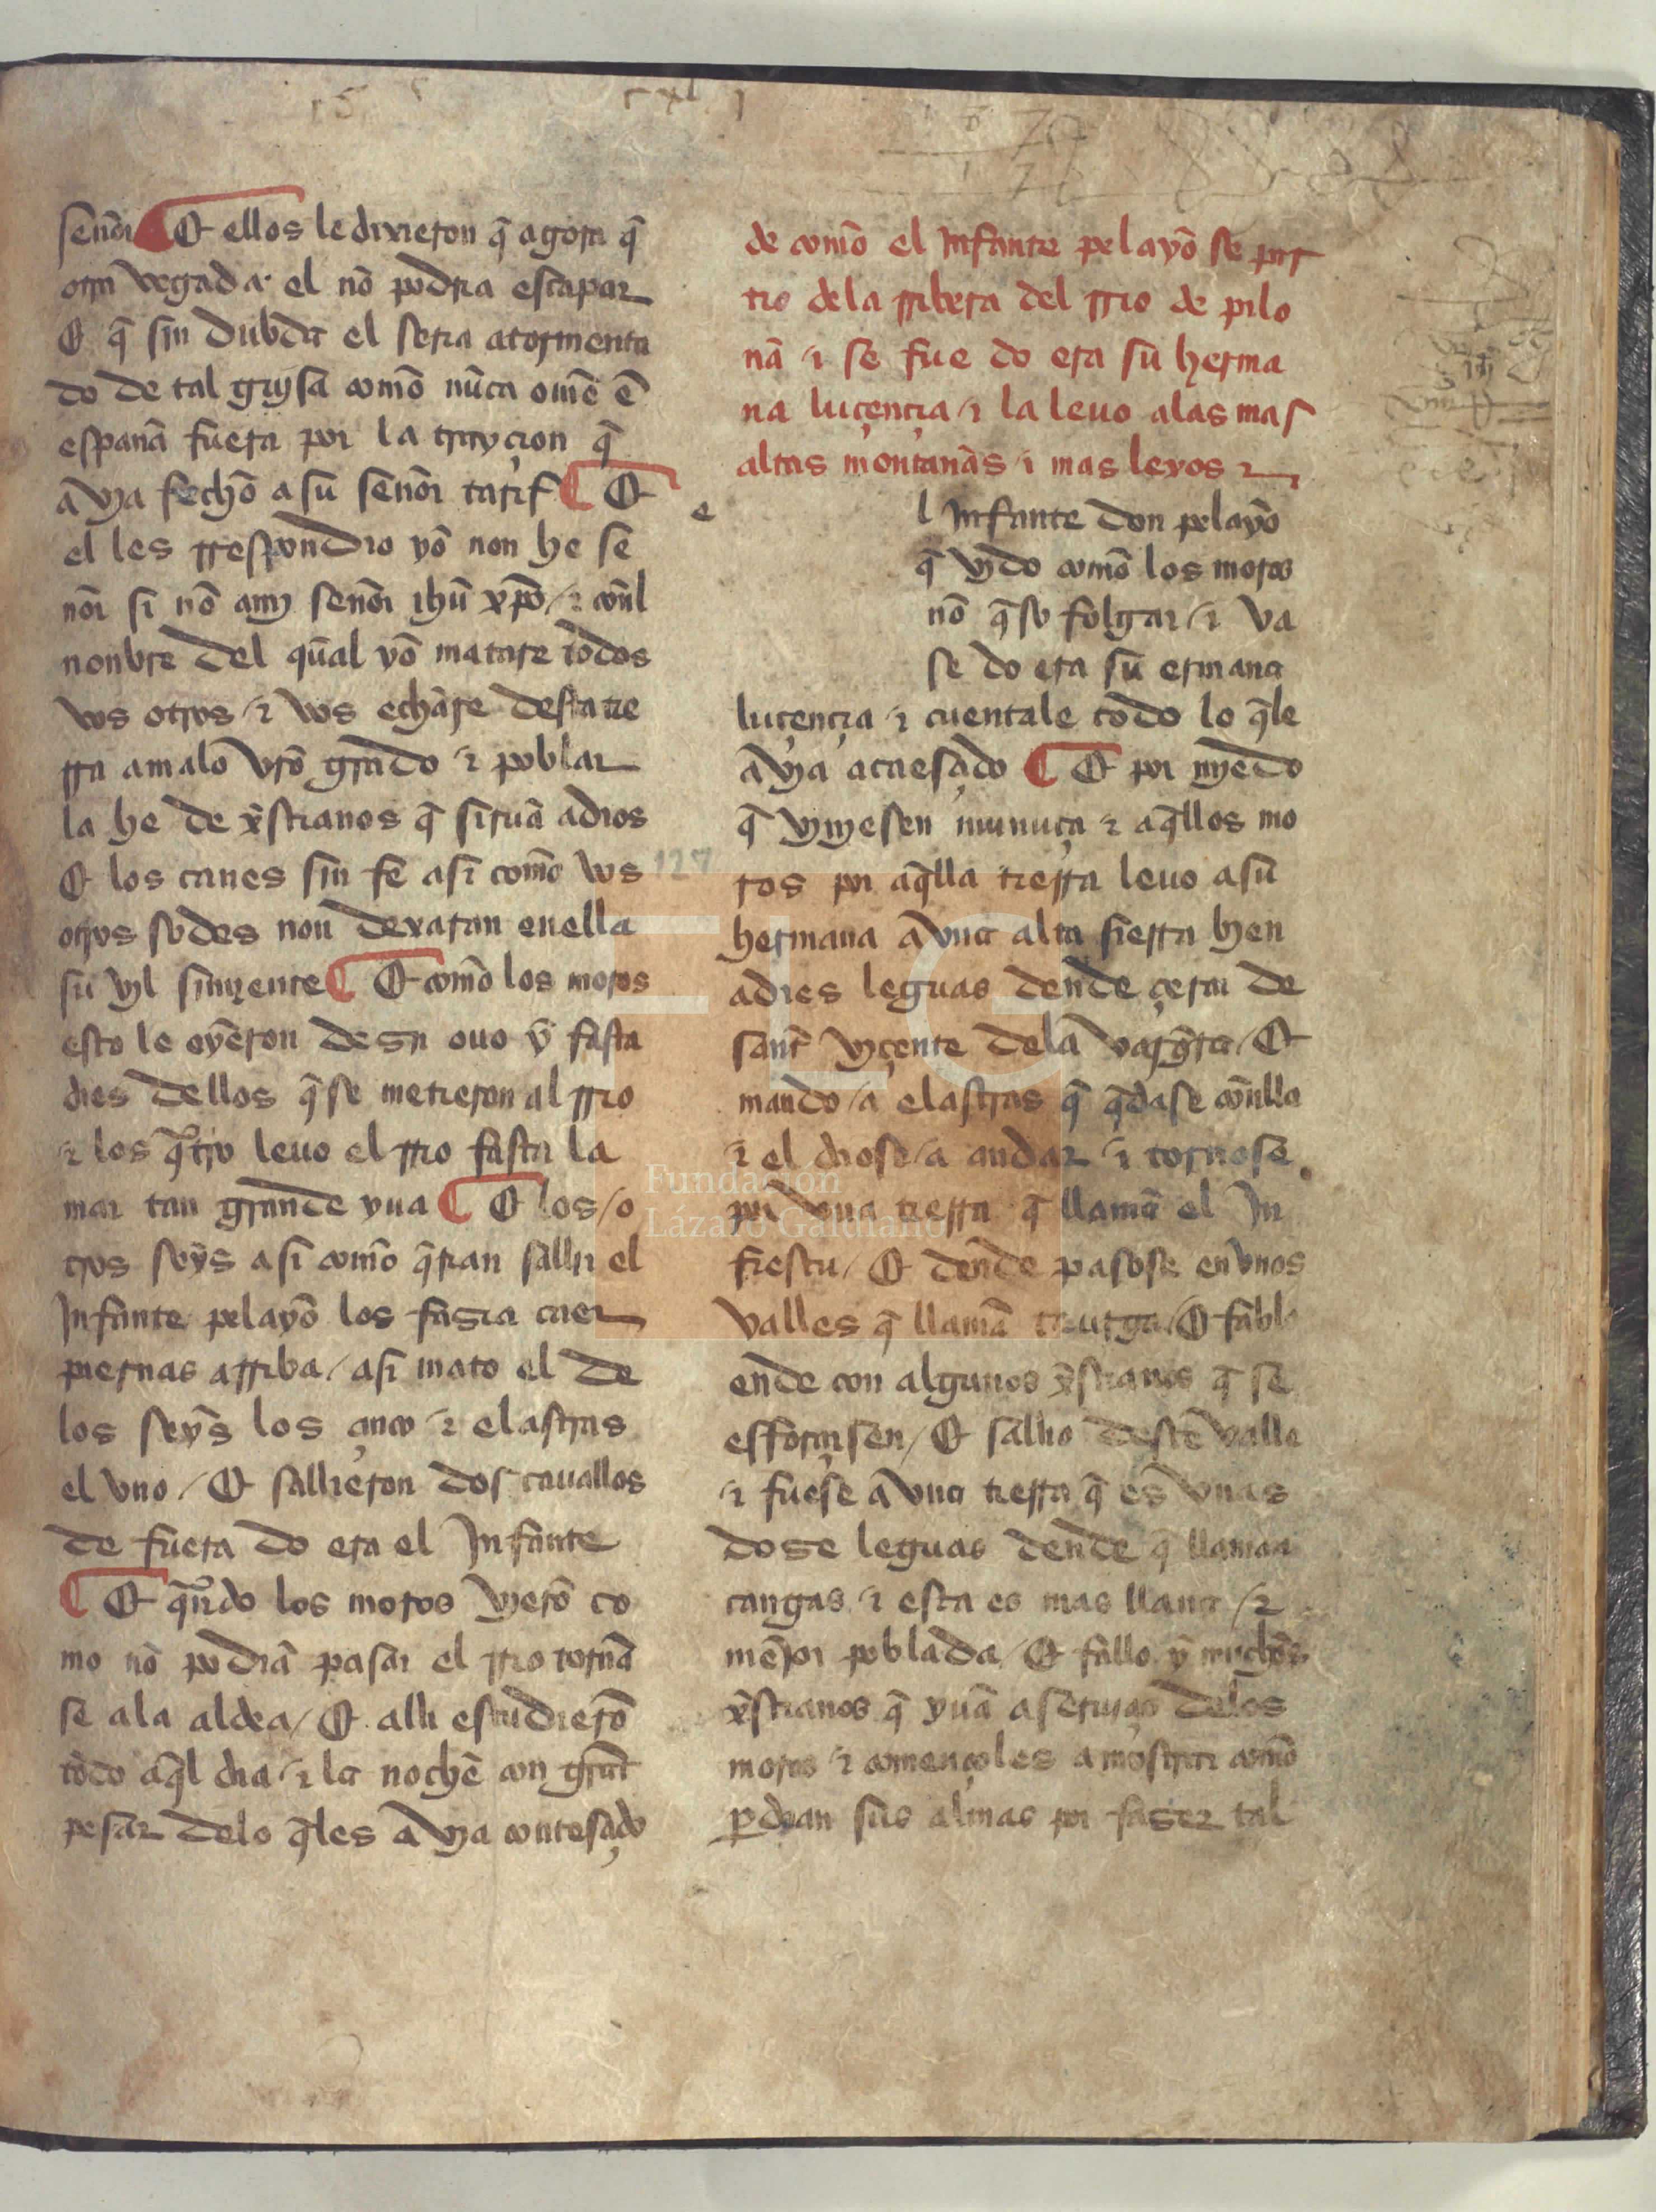 señor ¶ Et ellos le dixieron q̃ agora q̃
otra vegada el nõ podria escapar
Et q̃ sin dubda el seria atormenta
do de tal guysa comõ nũca omẽ ẽ
españa fuera por la trayçion q̃
avya fechõ a su señor tarif ¶ Et
el les rrespondio yõ non he se
ñor si nõ a my señor ihũ xp̃o / ⁊ cõnl
nonbre del qual yõ matare todos
vos otros / ⁊ vos echare desta tie
rra a malo vrõ grado ⁊ poblar
la he de xp̃stianos q̃ siruã a dios
Et los canes sin fe asi como vos
otros sodes non dexaran en ella
su vyl simyente ¶ Et comõ los moros
esto le oyeron desir ouo ỹ fasta
dies dellos q̃ se metieron al rrio
⁊ los q̃tro leuo el rrio fasta la
mar tan grande yua ¶ Et los / o
tros seỹs asi comõ q̃rian sallir el
Infante pelayõ los fasia caer
piernas arriba / asi mato el de
los seỹs los çinco ⁊ elastras
el vno / Et sallieron dos cauallos
de fuera do era el Infante
¶ Et quãdo los moros vierõ co
mo nõ podriã pasar el rrio tornã
se a la aldea / Et alli estudierõ
todo aq̃l dia / ⁊ la noche con grãt
pesar delo q̃les avya contesçido
de comõ el Infante pelayõ se par
tio dela rribera del rrio de pilo
ña ⁊ se fue do era su herma
na luçençia / ⁊ la leuo alas mas
altas montañas ⁊ mas lexos
e
l Infante don pelayõ
q̃ vydo comõ los moros
nõ q̃so folgar / ⁊ va
se do era su ermana
luçençia ⁊ cuentale todo lo q̃le
avya acaesçido ¶ Et por myedo
q̃ vinyesen munuça ⁊ aq̃llos mo
ros por aq̃lla tierra leuo a su
hermana a vna alta sierra byen
a dies leguas dende çerca de
sant vyçente dela varq̃ra / Et
mando / a elastras q̃ q̃dase cõnlla
⁊ el diose / a andar ⁊ tornose
por vna tierra q̃ llamã el In
fiesta / Et dende pasose en vnos
valles q̃ llamã / Et fablo
ende con algunos xp̃stianos q̃ se
efforçasen / Et sallio deste valle
⁊ fuese a vna tierra q̃ es vnas
dose leguas dende q̃ llaman
cangas ⁊ esta es mas llana / ⁊
mejor poblada / Et fallo ỹ muchos
xp̃stianos q̃ yuã a seruiçio delos
moros ⁊ començoles a mostrar comõ
p̱dian sus almas por faser tal
127
Fundación
Lázaro Galdiano
FLG